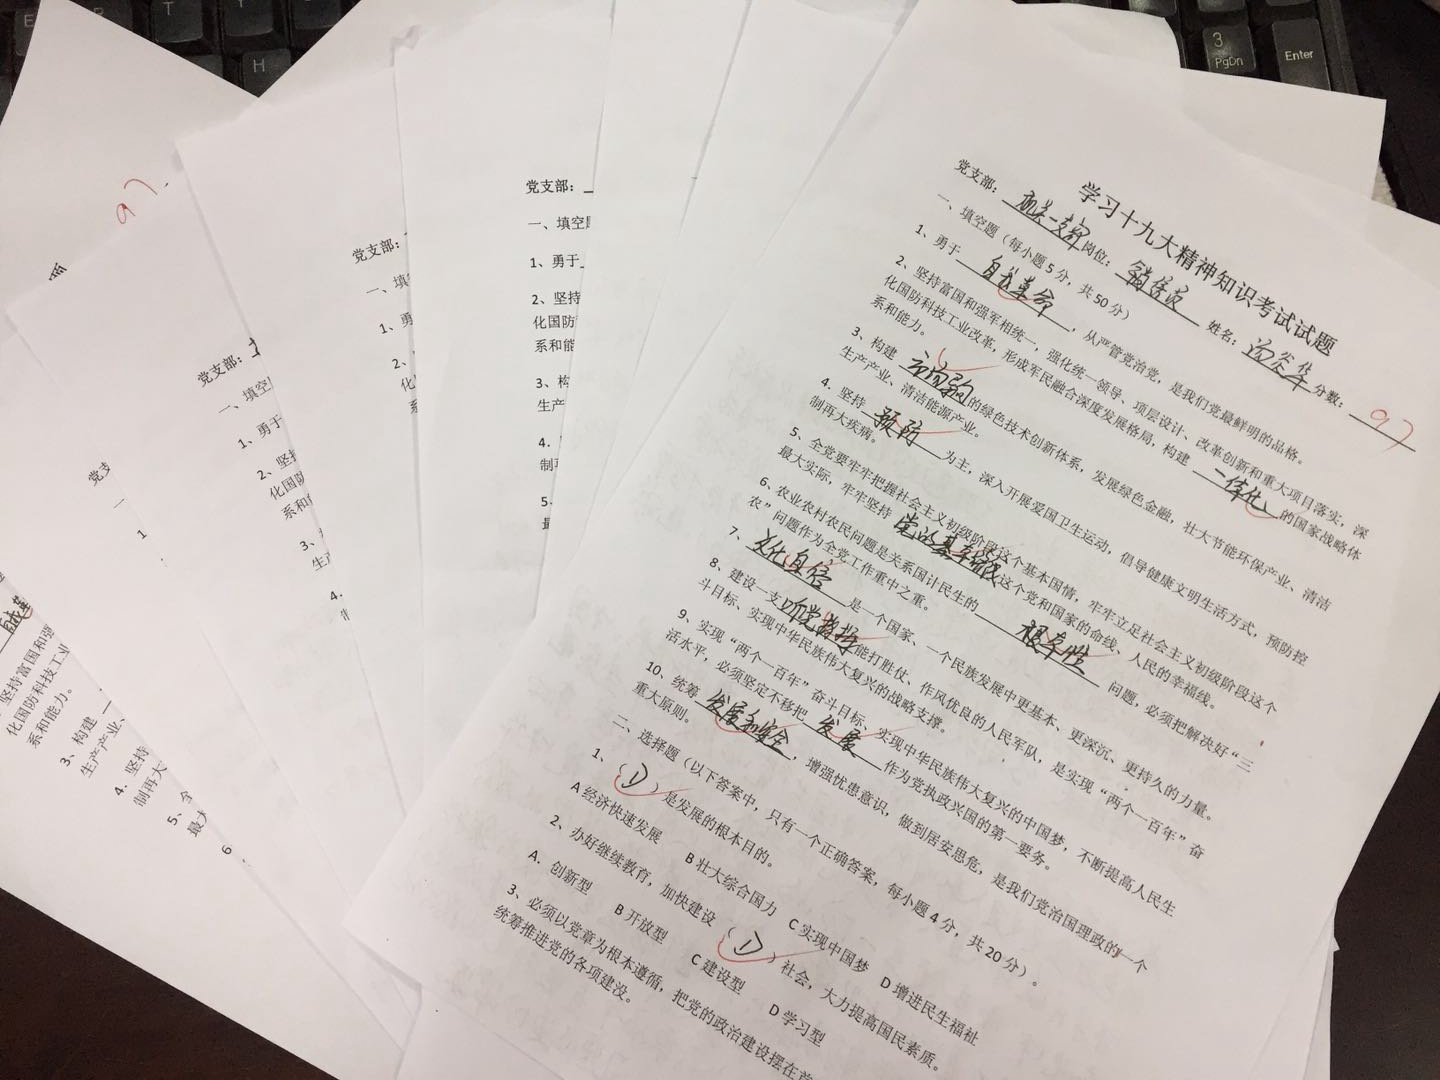 学习十九大精神知识考试试题
党支部：机关一支部 岗位：销售员 姓名： 分数：97
一、填空题（每小题5分，共50分）
1、勇于 自我革命 ，从严管党治党，是我们党最鲜明的品格。
2、坚持富国和强军相统一，强化统一领导、顶层设计、改革创新和重大项目落实，深
化国防科技工业改革，形成军民融合深度发展格局，构建 一体化 的国家战略体
系和能力。
3、构建 市场导向的绿色技术创新体系，发展绿色金融，壮大节能环保产业、清洁
生产产业、清洁能源产业。
4．坚持 预防 为主，深入开展爱国卫生运动，倡导健康文明生活方式，预防控
制再大疾病。
5、全党要牢牢把握社会主义初级阶段这个基本国情，牢牢立足社会主义初级阶段这个
最大实际，牢牢坚持 党的基本路线 这个党和国家的命线、人民的幸福线。
6、农业农村农民问题是关系国计民生的 根本性 问题，必须把解决好“三
农”问题作为全党工作重中之重。
7、 文化自信 是一个国家、一个民族发展中更基本、更深沉、更持久的力量。
8、建设一支 听党指挥 能打胜仗、作风优良的人民军队，是实现“两个一百年”奋
斗目标、实现中华民族伟大复兴的战略支撑。
9、实现“两个一百年”奋斗目标、实现中华民族伟大复兴的中国梦，不断提高人民生
活水平，必须坚定不移把 发展 作为党执政兴国的第一要务。
10、统筹 发展和安全 ，增强忧患意识，做到居安思危，是我们党治国理政的一个
重大原则。
二、选择题（以下答案中，只有一个正确答案，每小题4分，共20分）。
1、（D）是发展的根本目的。
A 经济快速发展 B 壮大综合国力 C 实现中国梦 D 增进民生福祉
2、办好继续教育，加快建设（D）社会，大力提高国民素质。
A. 创新型 B 开放型 C 建设型 D 学习型
3、必须以党章为根本遵循，把党的政治建设摆在首
统筹推进党的各项建没。
党支部：
一、填空
1、勇于
2、坚持
化国防
系和能
3、构
生产
4．
制
5．
最
党支部：
一、填
1、勇
2、
化
系
党支部：
一、填空
1、勇于
2、坚
化国防
系和
3、
生产
4．
党支
1
97
自我革
坚持富国和强
化国防科技工业
系和能力。
3、构建
生产产业、
4．坚持
制再大
5、全
最大
6
3
PgDn
Enter
E
R
T
Y
H